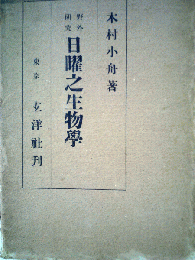 木村小舟著
野外研究
日曜之生物學
東京 文洋社刊